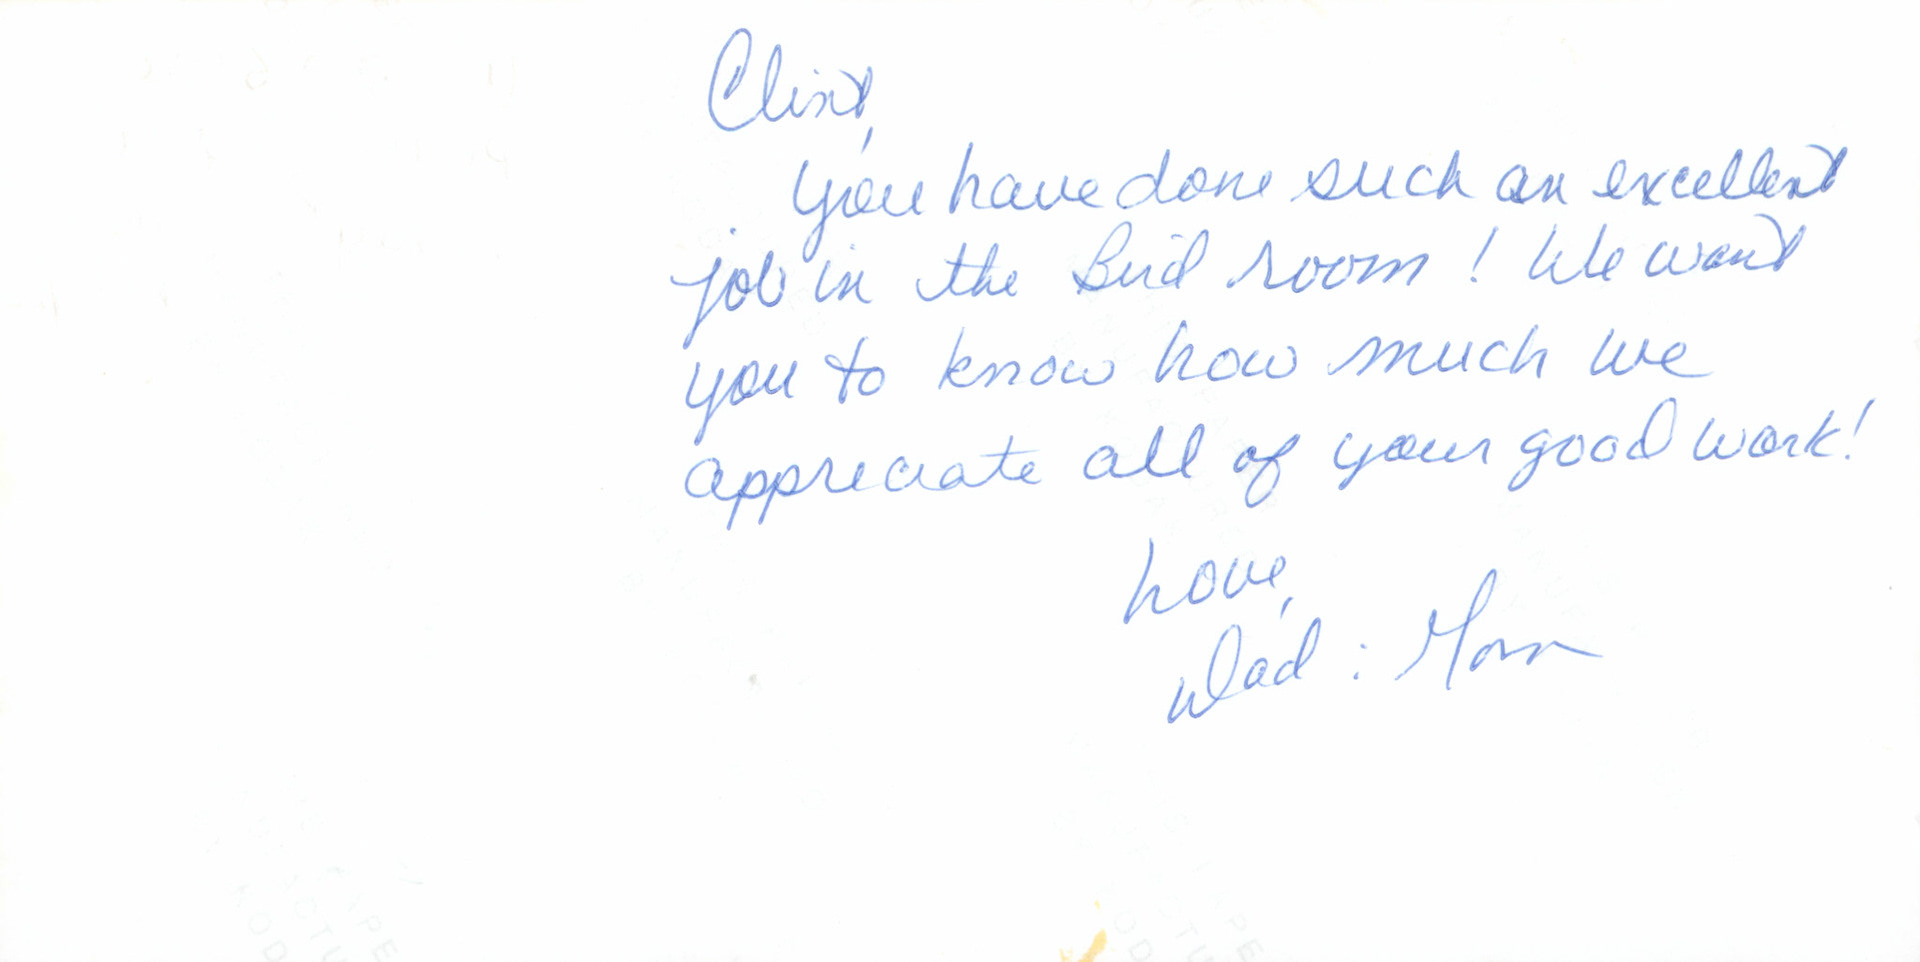 Clint,
You have done such an excellent
job in the Bird room! We want
you to know how much we
appreciate all of your good work!
Love,
Dad : Mom